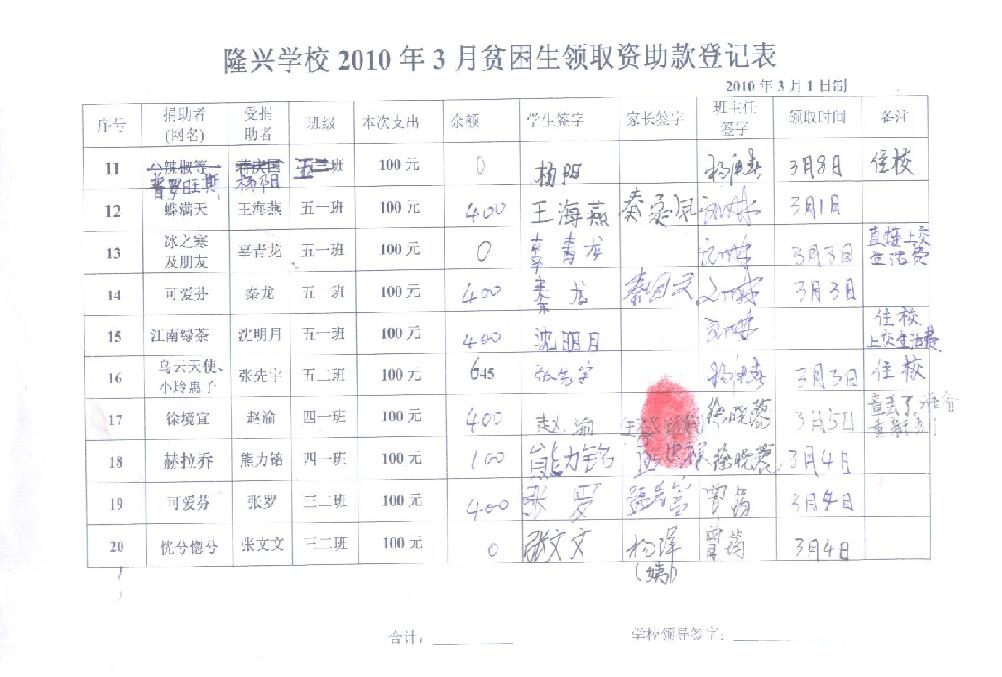 隆兴学校2010年3月贫困生领取资助款登记表
2010年3月1日制
序号 捐助者(网名) 受捐助者 班级 本次支出 余额 学生签字 家长签字 班主任签字 领取时间 备注
11 辣椒等 普罗旺斯 杨阳 五二班 100元 0 杨阳 3月8日 住校
12 蝶满天 王海燕 五一班 100元 400 王海燕 3月1日
13 冰之寒及朋友 辜青龙 五一班 100元 0 辜青龙 3月3日 直接上交生活费
14 可爱芬 秦龙 五一班 100元 400 秦龙 3月3日
15 江南绿茶 沈明月 五一班 100元 400 沈明月 住校 上交生活费
16 乌云天使、小玲惠子 张先宇 五二班 100元 645 张先宇 3月3日 住校
17 徐境宜 赵渝 四一班 100元 400 赵渝 徐晓蓉 3月5日
18 赫拉乔 熊力铭 四一班 100元 100 熊力铭 徐晓蓉 3月4日
19 可爱芬 张罗 三二班 100元 400 张罗 曾筠 3月4日
20 恍兮惚兮 张文文 三二班 100元 0 张文文 杨萍 曾筠 3月4日
(姨)
合计: 学校领导签字: